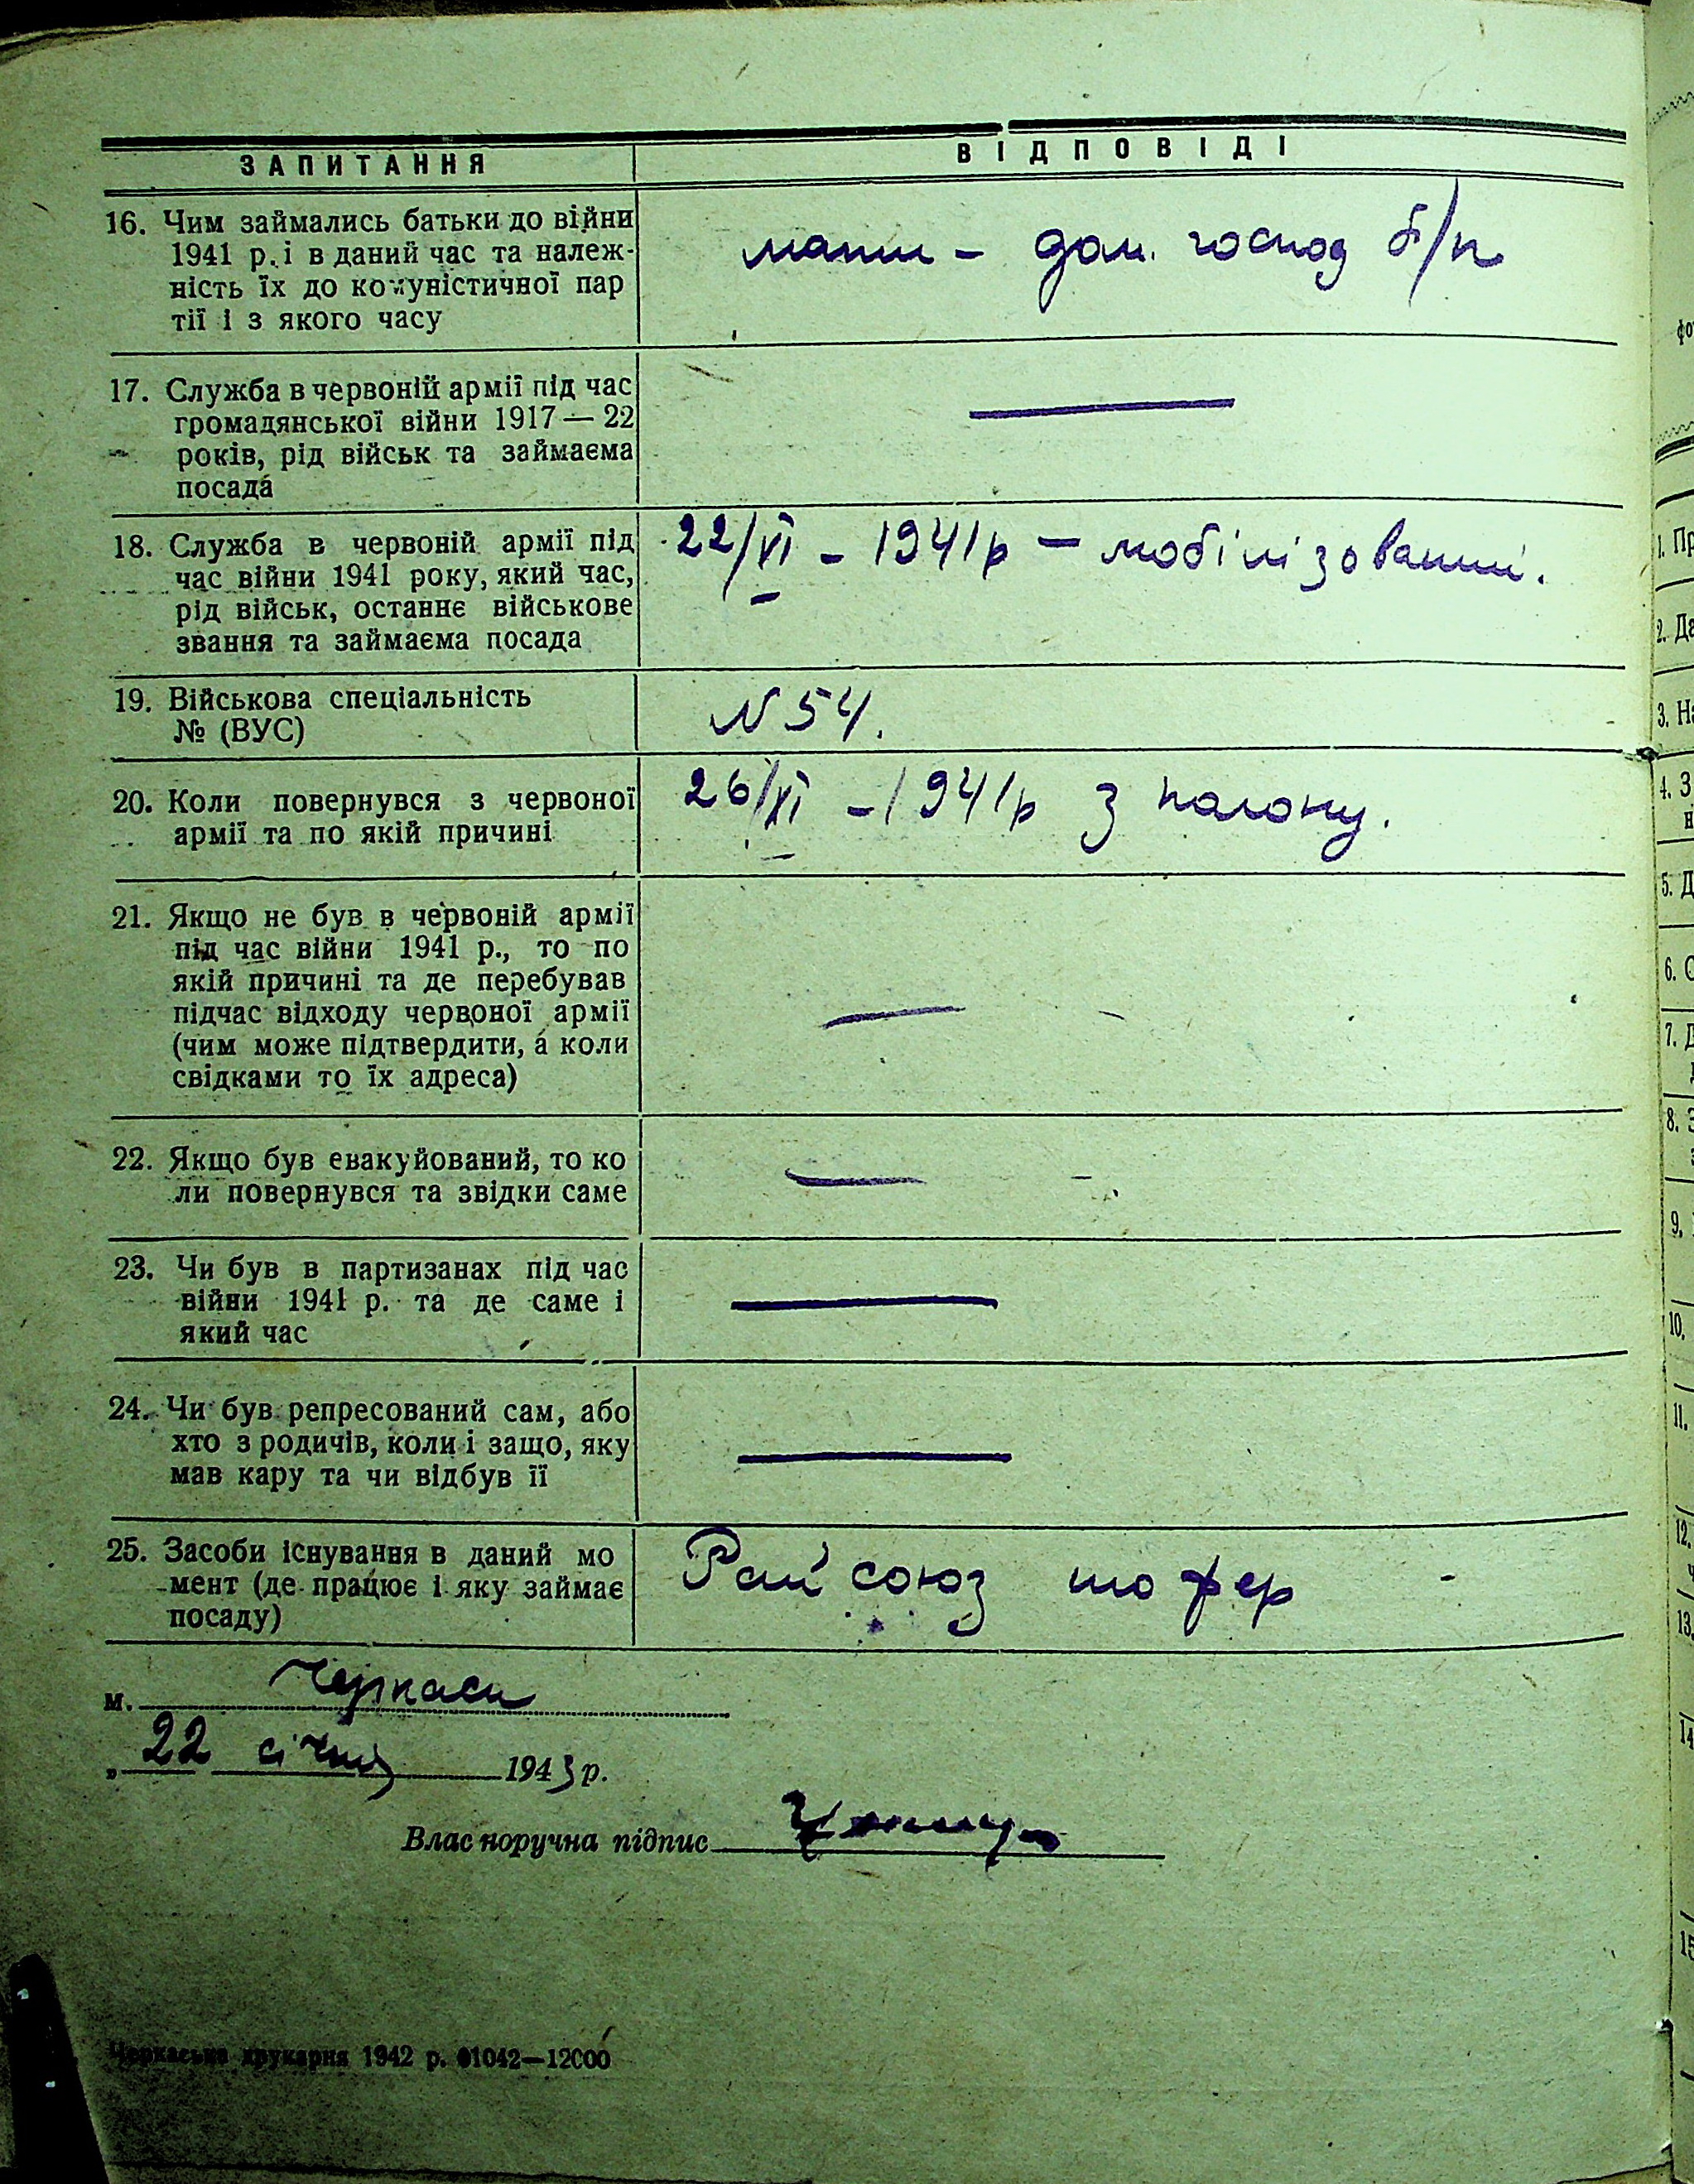 ЗАПИТАННЯ
ВІДПОВІДІ
16. Чим займались батьки до війни
1941 р. і в даний час та належ-
ність їх до комуністичної пар
тії і з якого часу
мати – дом. господ б/п
17. Служба в червоній армії під час
громадянської війни 1917 — 22
років, рід військ та займаєма
посада
18. Служба в червоній армії під
час війни 1941 року, який час,
рід військ, останнє військове
звання та займаєма посада
22/VI – 1941р – мобілізований.
19. Військова спеціальність
№ (ВУС)
N 54.
20. Коли повернувся з червоної
армії та по якій причині
26/XI – 1941р з полону.
21. Якщо не був в червоній армії
під час війни 1941 р., то по
якій причині та де перебував
підчас відходу червоної армії
(чим може підтвердити, а коли
свідками то їх адреса)
22. Якщо був евакуйований, то ко
ли повернувся та звідки саме
23. Чи був в партизанах під час
війни 1941 р. та де саме і
який час
24. Чи був репресований сам, або
хто з родичів, коли і защо, яку
мав кару та чи відбув її
25. Засоби існування в даний мо
мент (де працює і яку займає
посаду)
Рай союз шофер
м. Черкаси
„ 22 січня 1943 р.
Власноручна підпис
Черкаська друкарня 1942 р. 01042—12000
фо
1. Пр
2. Да
3. На
4. З
н
5. Д
6. С
7. Д
8. З
9.
10.
11.
12.
ч
13.
14
15